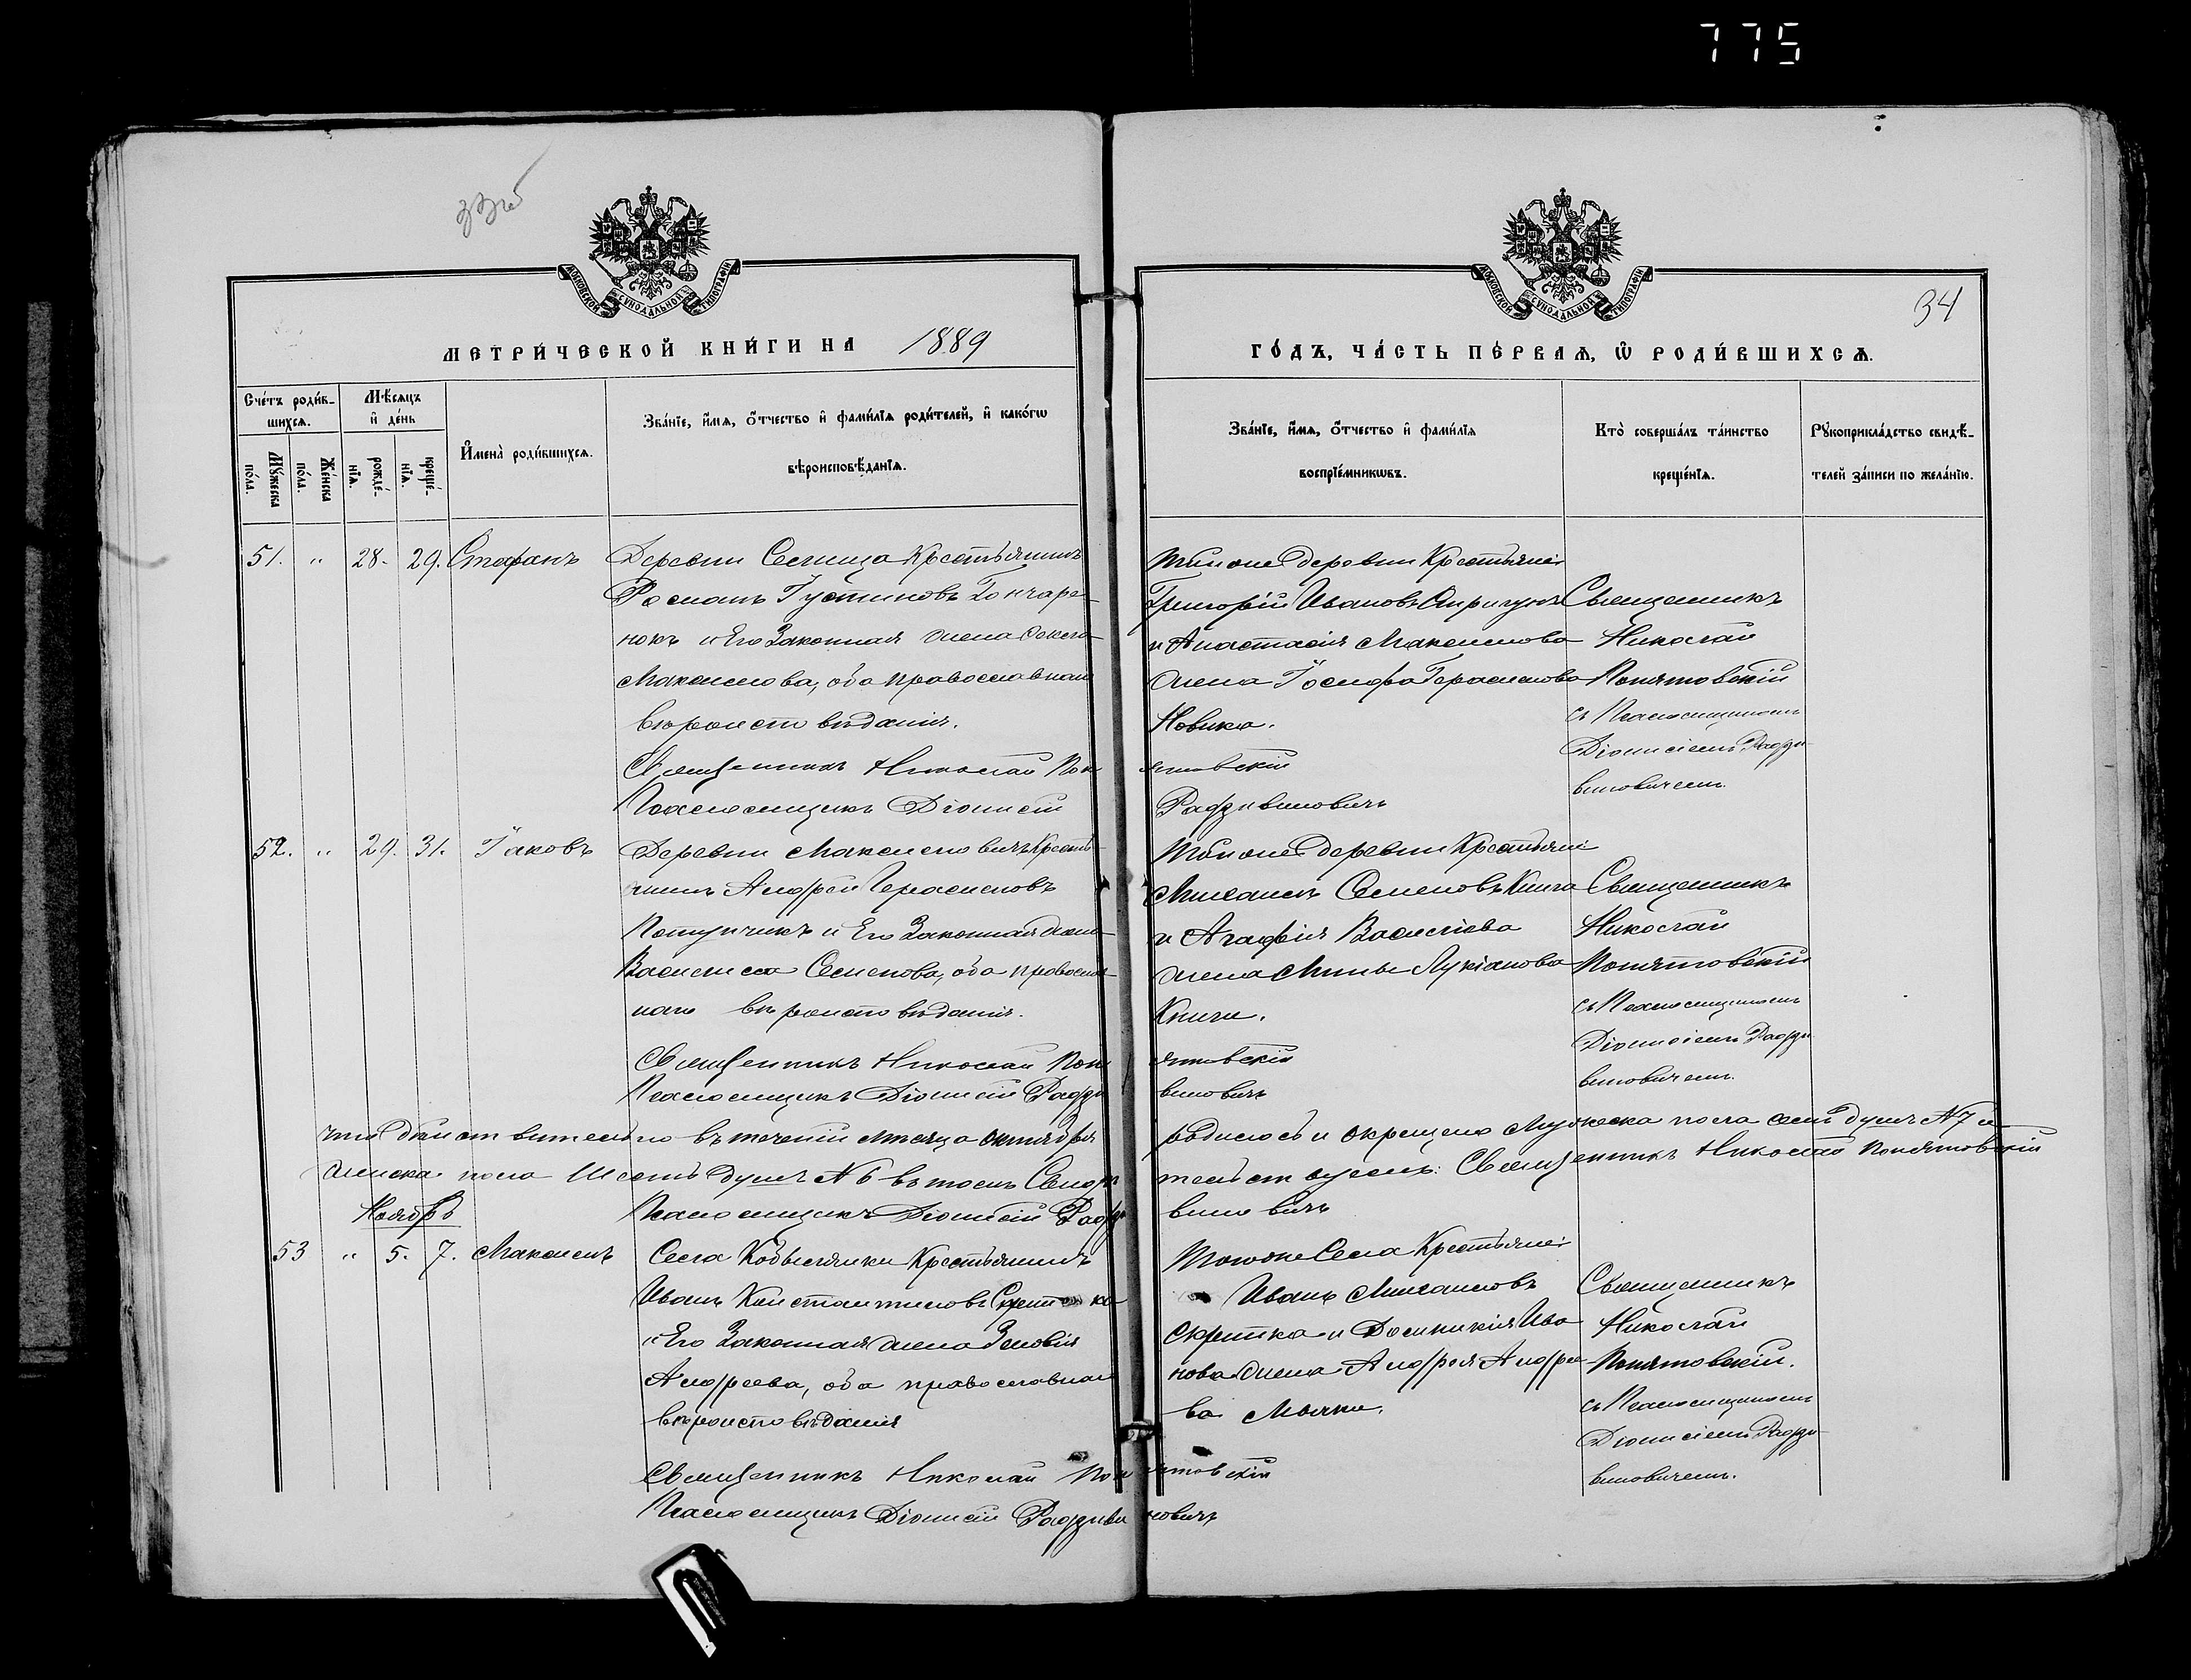 775
34
МОСКОВСКОЙ СѴНОДАЛЬНОЙ ТИПОГРАФІИ
МОСКОВСКОЙ СѴНОДАЛЬНОЙ ТИПОГРАФІИ
МЕТРИ́ЧЕСКОЙ КНИ́ГИ НА 1889
ГО́ДЪ, ЧА́СТЬ ПЕ́РВАѦ, Ѡ҆ РОДИ́ВШИХСѦ.
Сче́тъ роди́в-
шихсѧ.
Мѹ́жеска
по́ла.
Же́нска
по́ла.
Мѣ́сѧцъ
и҆ де́нь
рожде́-
нїѧ.
креще́-
нїѧ.
И҆мена̀ роди́вшихсѧ.
Зва́нїе, и҆́мѧ, ѻ҆́тчество и҆ фами́лїѧ роди́телей, и҆ како́гѡ
вѣроисповѣ́данїѧ.
Зва́нїе, и҆́мѧ, ѻ҆́тчество и҆ фами́лїѧ
воспрїе́мникѡвъ.
Кто̀ соверша́лъ та́инство
креще́нїѧ.
Рѹкоприкла́дство свидѣ́-
телей за́писи по жела́нїю.
51. " 28. 29. Стефанъ
Деревни Селища Крестьянинъ
Романъ Іустиновъ Гончаре-
нокъ и Его Законная жена
Максимова, оба православнаго
вѣроисповѣданія.
Священникъ Николай Пон
Псаломщикъ Діонисій
Тойже деревни Крестьяне:
Григорій Ивановъ
и Анастасія Максимова
жена Іосифа Герасимова
Новика.
ятовскій
Радзивиловичъ
Священникъ
Николай
Понятовскій
съ Псаломщикомъ
Діонисіемъ Радзи-
виловичемъ.
52. " 29. 31. Іаковъ
Деревни Максимовичъ Кресть-
янинъ Андрей Герасимовъ
и Его Законная жена
Василиса Семенова, оба православ-
наго вѣроисповѣданія.
Священникъ Николай Пон
Псаломщикъ Діонисій Радзи
Тойже деревни Крестьяне
Михаилъ Семеновъ Книга
и Агафія Василіева
жена Мины Лукіанова
Книги.
ятовскій
виловичъ
Священникъ
Николай
Понятовскій
съ Псаломщикомъ
Діонисіемъ Радзи
виловичемъ.
Что дѣйствительно въ теченіи мѣсяца октября родилось и окрещено Мужеска пола семь душъ N 7 и
женска пола Шесть душъ N 6 въ томъ Свидѣтельствуемъ: Священникъ Николай Понятовскій
Псаломщикъ Діонисій Радзивиловичъ
Ноябрь
53 " 5. 7. Максимъ
Села Кобылянки Крестьянинъ
Иванъ Константиновъ
и Его Законная жена Зеновія
Андреева, оба православнаго
вѣроисповѣданія
Священникъ Николай Пон
Псаломщикъ Діонисій Радзиви
Тогоже Села Крестьяне:
Иванъ Михаиловъ
Скритка и Домникія Ива
нова жена Андрея Андрее
ва
ятовскій
ловичъ
Священникъ
Николай
Понятовскій.
съ Псаломщикомъ
Діонисіемъ Радзи-
виловичемъ.